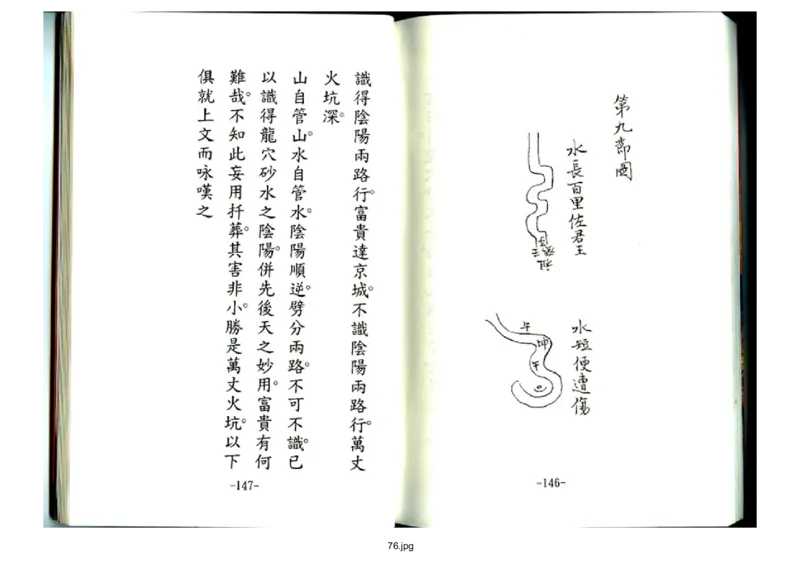 第九節圖
水長百里佐君王
水短便遭傷
午
坤
午
-146-
識得陰陽兩路行。富貴達京城。不識陰陽兩路行。萬丈
火坑深。
山自管山。水自管水。陰陽順逆。劈分兩路。不可不識。已
以識得龍穴砂水之陰陽。併先後天之妙用。富貴有何
難哉。不知此妄用扦葬。其害非小。勝是萬丈火坑。以下
俱就上文而咏嘆之
-147-
76.jpg